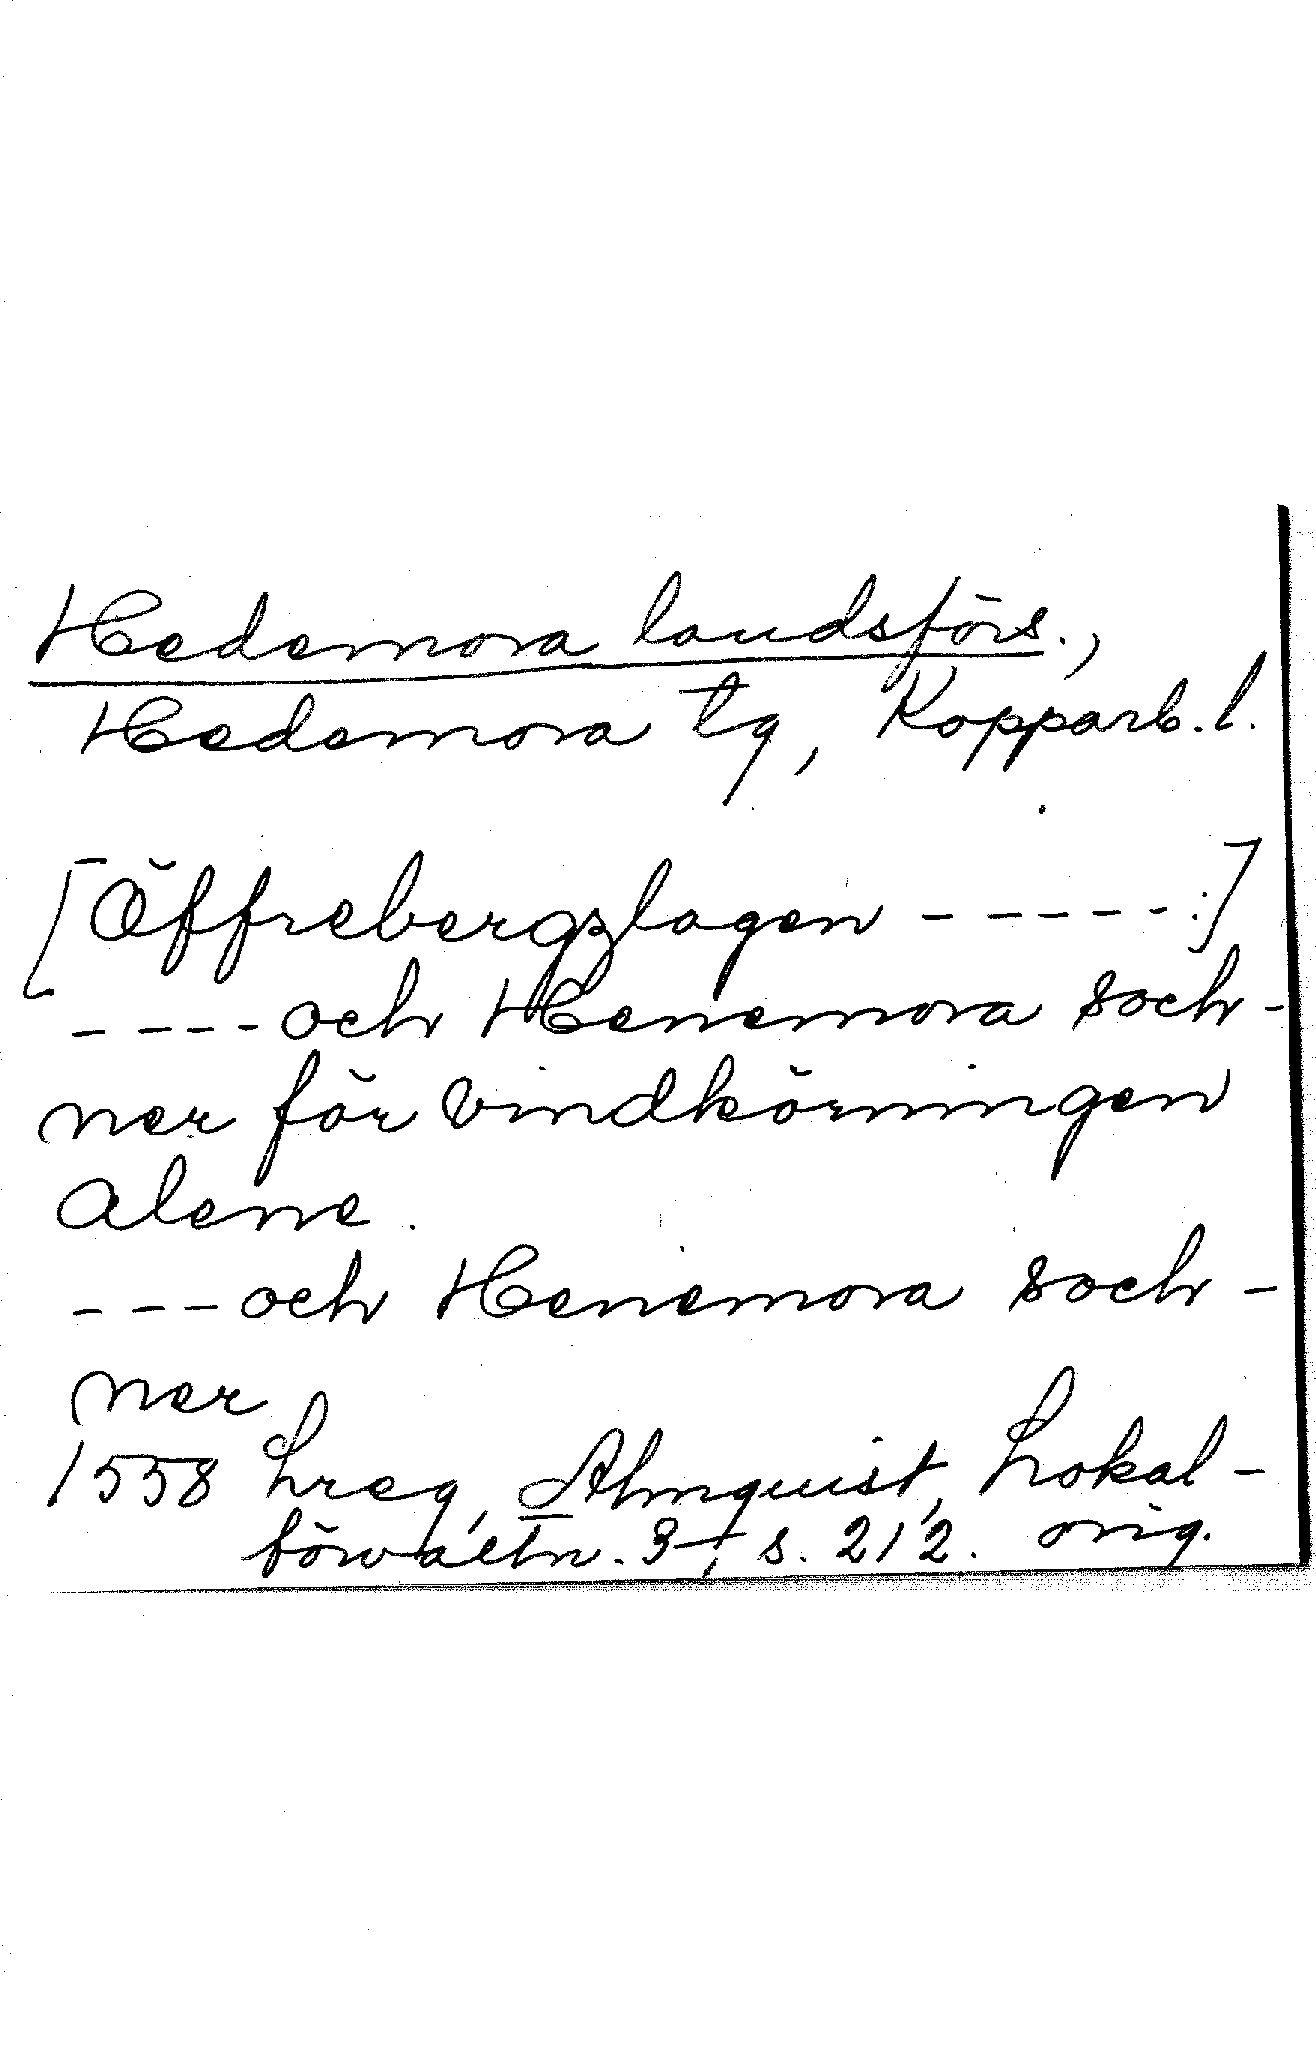 Hedemora landsförs.,
Hedemora tg, Kopparb. l.
[Öffrebergzlagen - - - - - :]
- - - - och Henemora soch-
ner för vindkörningen
Alene.
- - - och Henemora soch-
ner
1558 Lreg, Almquist, Lokal-
förvaltn. 3, s. 212. orig.